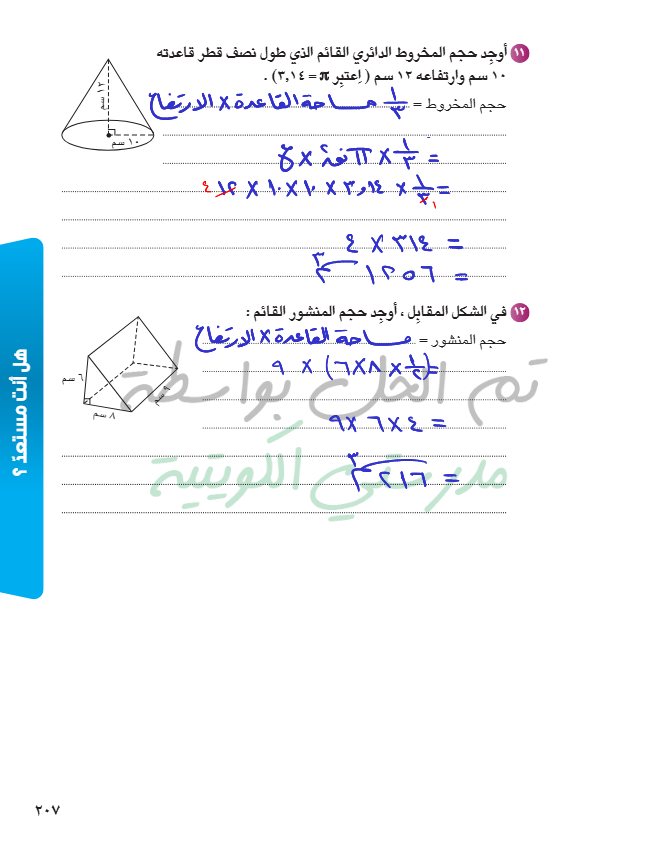 ١١ أوجِد حجم المخروط الدائري القائم الذي طول نصف قطر قاعدته
١٠ سم وارتفاعه ١٢ سم ( اِعتبِر π = ٣,١٤ ) .
١٢ سم
١٠ سم
حجم المخروط = ١/٣ مساحة القاعدة × الارتفاع
= ١/٣ × π نق٢ × ع
= ١/٣ × ٣,١٤ × ١٠ × ١٠ × ١٢ ٤
١
= ٣١٤ × ٤
= ١٢٥٦ سم٣
١٢ في الشكل المقابِل ، أوجِد حجم المنشور القائم :
٦ سم
٨ سم
٩ سم
حجم المنشور = مساحة القاعدة × الارتفاع
= (١/٢ × ٨ × ٦) × ٩
= ٤ × ٦ × ٩
= ٢١٦ سم٣
تم الحل بواسطة
مدرستي الكويتية
هل أنت مستعدّ ؟
٢٠٧